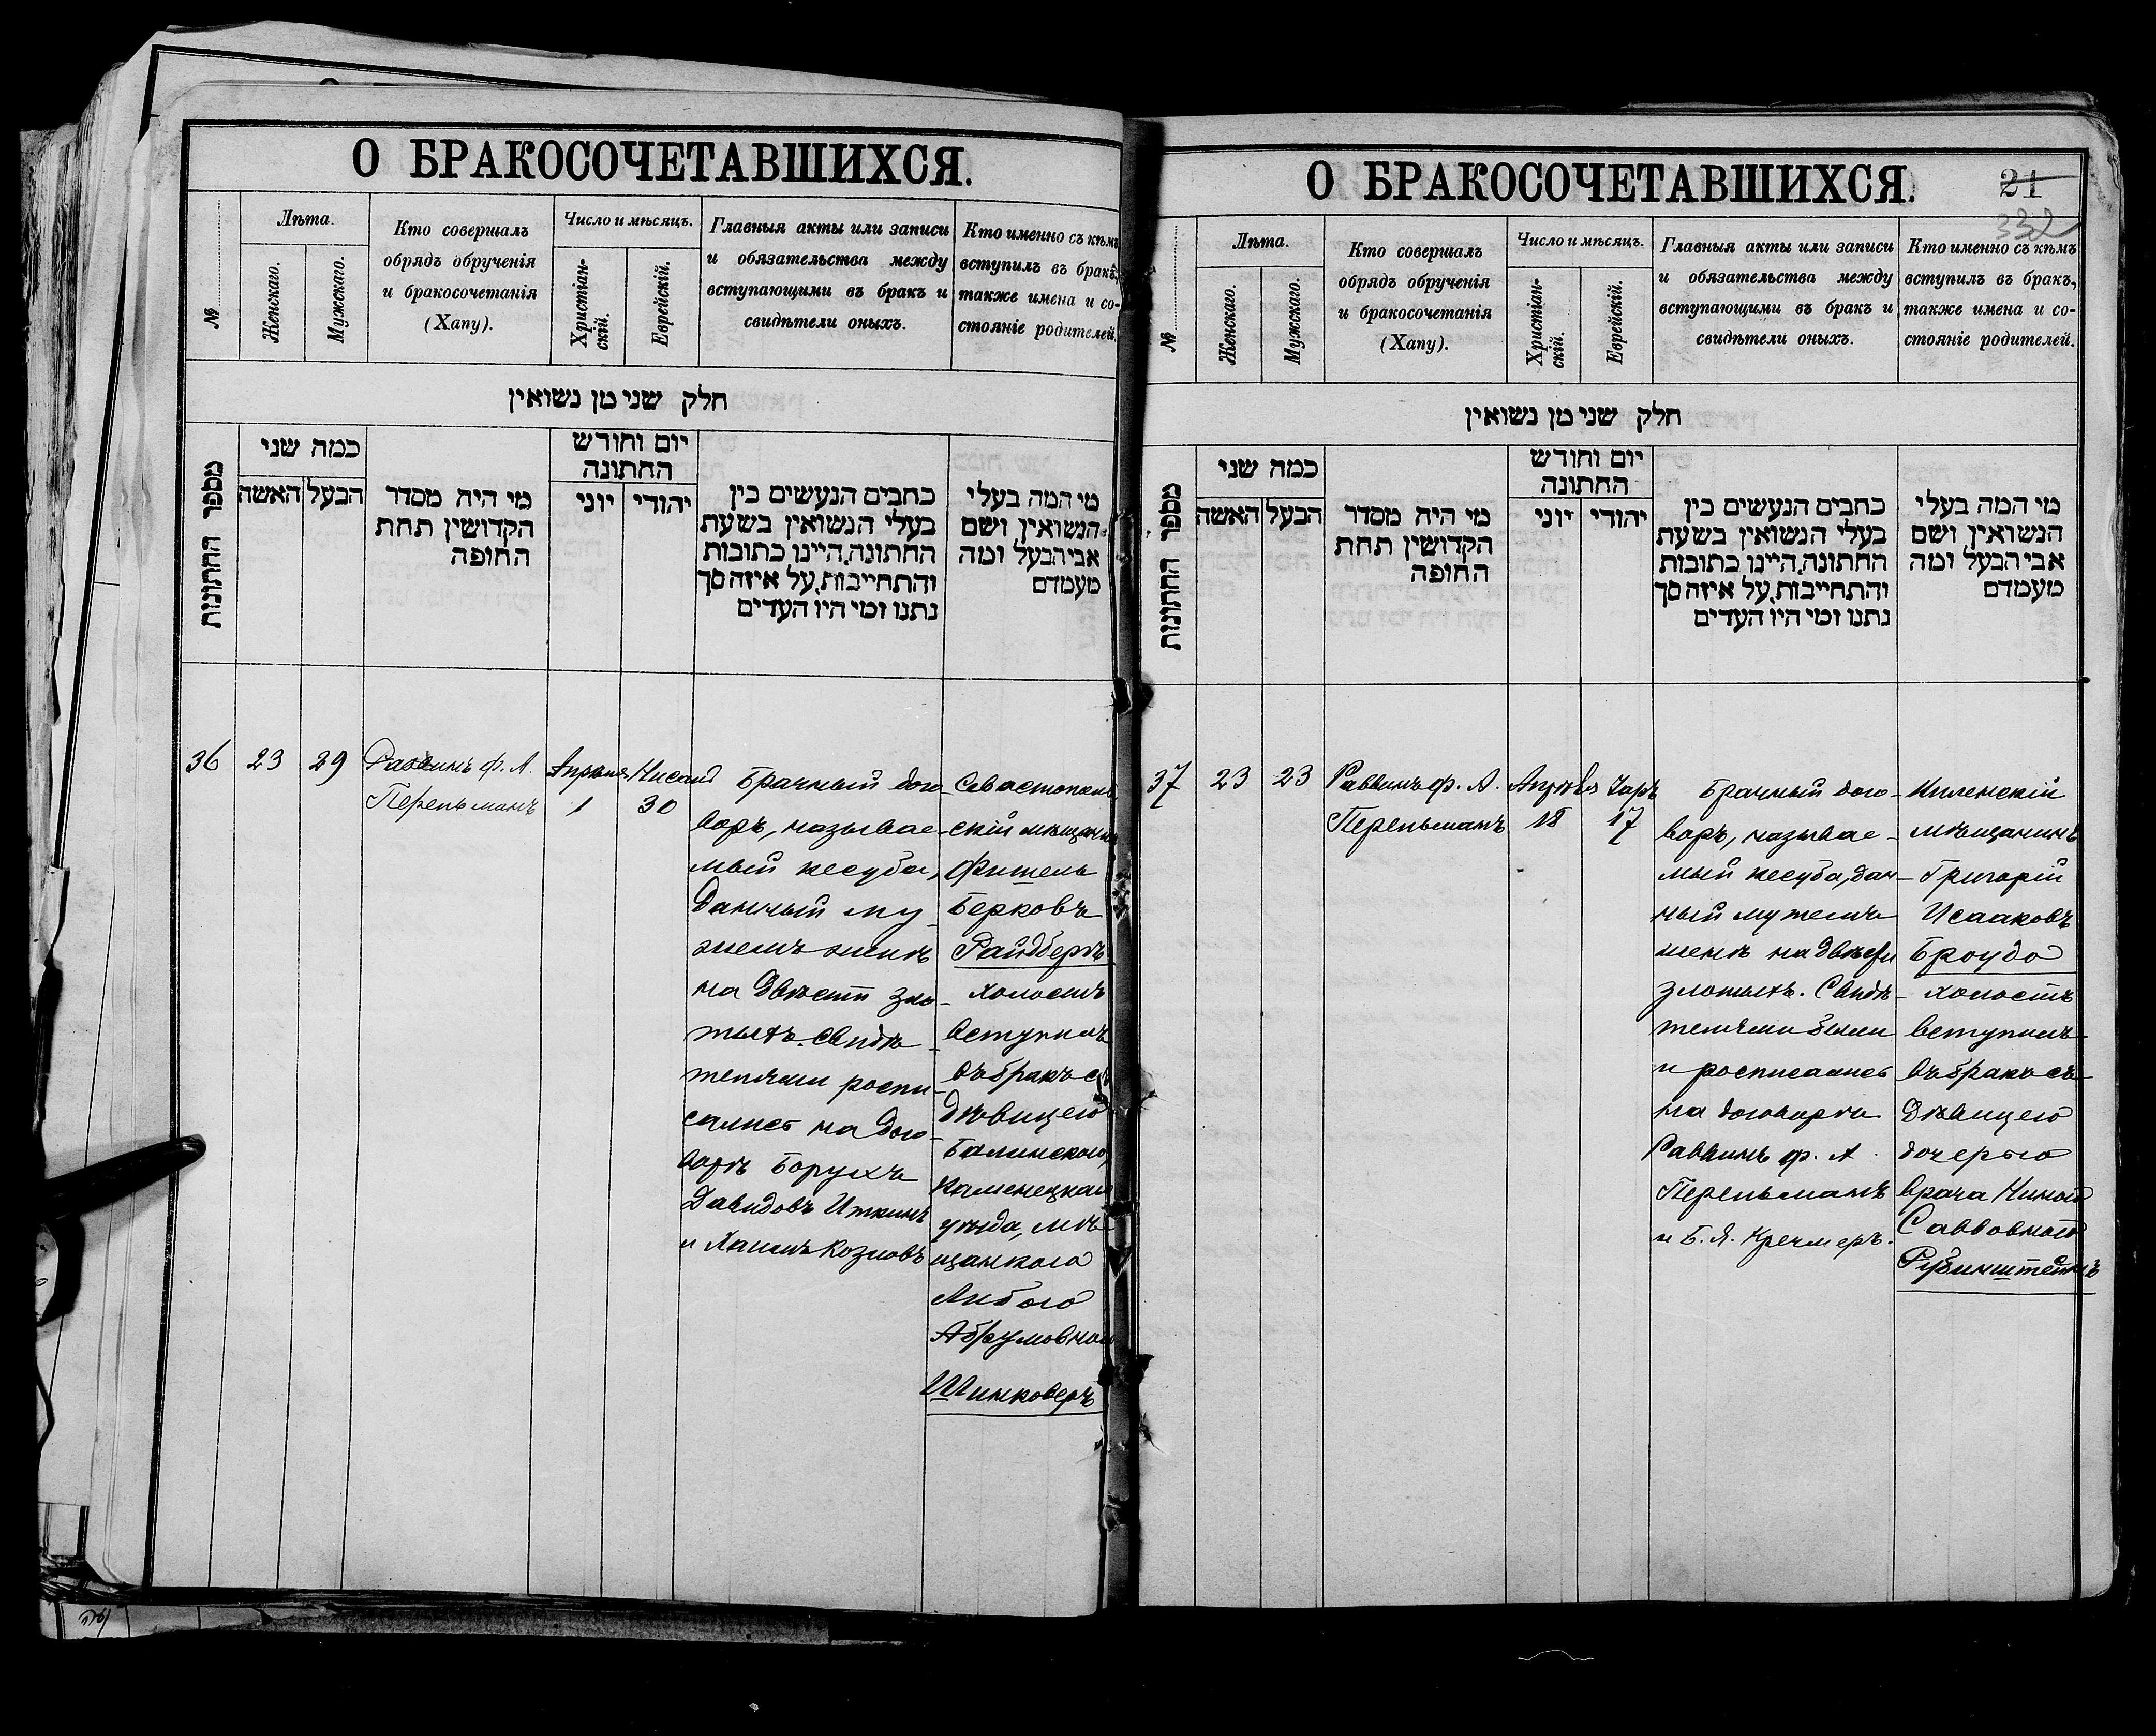 О БРАКОСОЧЕТАВШИХСЯ.
№
Лѣта.
Женскаго.
Мужскаго.
Кто совершалъ
обрядъ обрученія
и бракосочетанія
(Хапу).
Число и мѣсяцъ.
Христіан-
скій.
Еврейскій.
Главныя акты или записи
и обязательства между
вступающими въ бракъ и
свидѣтели оныхъ.
Кто именно съ кѣмъ
вступилъ въ бракъ,
также имена и со-
стояніе родителей.
חלק שני מן נשואין
מספר החתונות
כמה שני
האשה
הבעל
מי היה מסדר
הקדושין תחת
החופה
יום וחודש
החתונה
יוני
יהודי
כתבים הנעשים בין
בעלי הנשואין בשעת
החתונה, היינו כתובות
והתחייבות, על איזה סך
נתנו ומי היו העדים
מי המה בעלי
הנשואין ושם
אבי הבעל ומה
מעמדם
36
23
29
Раввинъ Ф. А.
Перельманъ
Апрѣля
1
Нисанъ
30
Брачный дого
воръ, называе-
мый кесуба,
данный му
жемъ женѣ
на двѣсти зло-
тыхъ. Свидѣ
телями роспи
сались на дого-
ворѣ Борухъ
Давидовъ Иткинъ
и Хаимъ Козловъ
Севастополь
скій мѣщанинъ
Фишель
Берковъ
Райдберъ
холостъ
вступилъ
въ бракъ съ
дѣвицею
Балинскою,
Каменецкаго
уѣзда, мѣ
щанкою
Либою
Абрумовною
Шинковеръ
О БРАКОСОЧЕТАВШИХСЯ.
21
332
№
Лѣта.
Женскаго.
Мужскаго.
Кто совершалъ
обрядъ обрученія
и бракосочетанія
(Хапу).
Число и мѣсяцъ.
Христіан-
скій.
Еврейскій.
Главныя акты или записи
и обязательства между
вступающими въ бракъ и
свидѣтели оныхъ.
Кто именно съ кѣмъ
вступилъ въ бракъ,
также имена и со-
стояніе родителей.
חלק שני מן נשואין
מספר החתונות
כמה שני
האשה
הבעל
מי היה מסדר
הקדושין תחת
החופה
יום וחודש
החתונה
יוני
יהודי
כתבים הנעשים בין
בעלי הנשואין בשעת
החתונה, היינו כתובות
והתחייבות, על איזה סך
נתנו ומי היו העדים
מי המה בעלי
הנשואין ושם
אבי הבעל ומה
מעמדם
37
23
23
Раввинъ Ф. А.
Перельманъ
Апрѣля
18
Іаръ
17
Брачный дого-
воръ, называе-
мый кесуба, дан-
ный мужемъ
женѣ на двѣсти
злотыхъ. Свидѣ-
телями были
и росписались
на договорѣ
Раввинъ Ф. А.
Перельманъ
и Б. Я. Кречмеръ.
Виленскій
мѣщанинъ
Григорій
Исааковъ
Броудо
холостъ
вступилъ
въ бракъ съ
дѣвицею
дочерью
врача Ниною
Саввовною
Рубинштейнъ